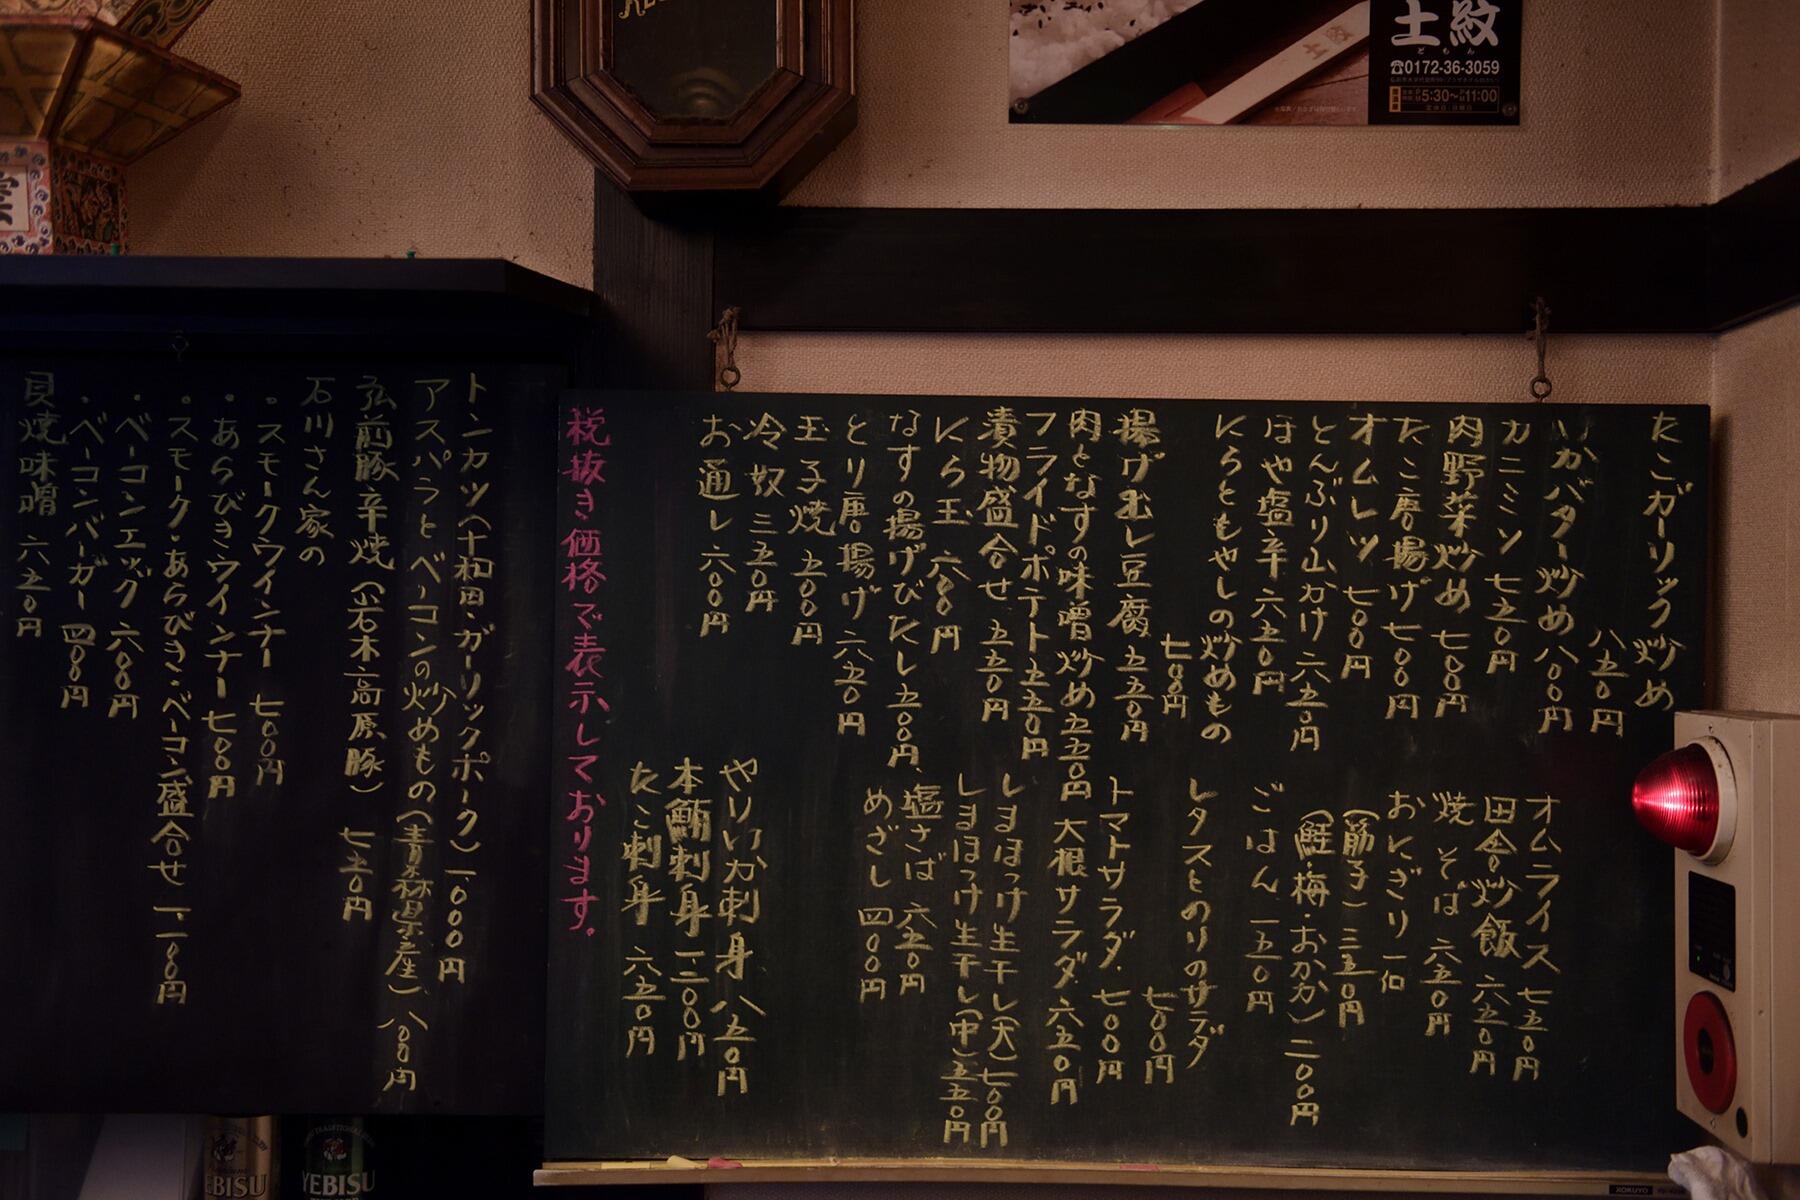 土紋
どもん
☎0172-36-3059
5:30~11:00
たこガーリック炒め
八五0円
いかバター炒め 八00円
カニミソ 七五0円
肉野菜炒め 七00円
たこ唐揚げ 七00円
オムレツ 七00円
とんぶり山かけ 六五0円
ほや塩辛 六五0円
にらともやしの炒めもの
七00円
揚げ出し豆腐 五五0円
肉となすの味噌炒め 五五0円
フライドポテト 五五0円
漬物盛合せ 五五0円
にら玉 六00円
なすの揚げびたし 五00円
とり唐揚げ 六五0円
玉子焼 五00円
冷奴 三五0円
お通し 六00円
オムライス 七五0円
田舎炒飯 六五0円
焼そば 六五0円
おにぎり一個
(筋子) 三五0円
(鮭・梅・おかか) 二00円
ごはん 一五0円
レタスとのりのサラダ
七00円
トマトサラダ 七00円
大根サラダ 六五0円
しまほっけ生干し(大) 七00円
しまほっけ生干し(中) 五五0円
塩さば 六五0円
めざし 四00円
やりいか刺身 八五0円
本鮪刺身 一、二00円
たこ刺身 六五0円
税抜き価格で表示しております。
トンカツ(十和田・ガーリックポーク) 一、000円
アスパラとベーコンの炒めもの(青森県産) 八00円
弘前豚辛焼(岩木高原豚) 七五0円
石川さん家の
・スモークウインナー 七00円
・あらびきウインナー 七00円
・スモーク・あらびき・ベーコン盛合せ 一、一00円
・ベーコンエッグ 六00円
・ベーコンバーガー 四00円
貝焼味噌 六五0円
YEBISU
KOKUYO